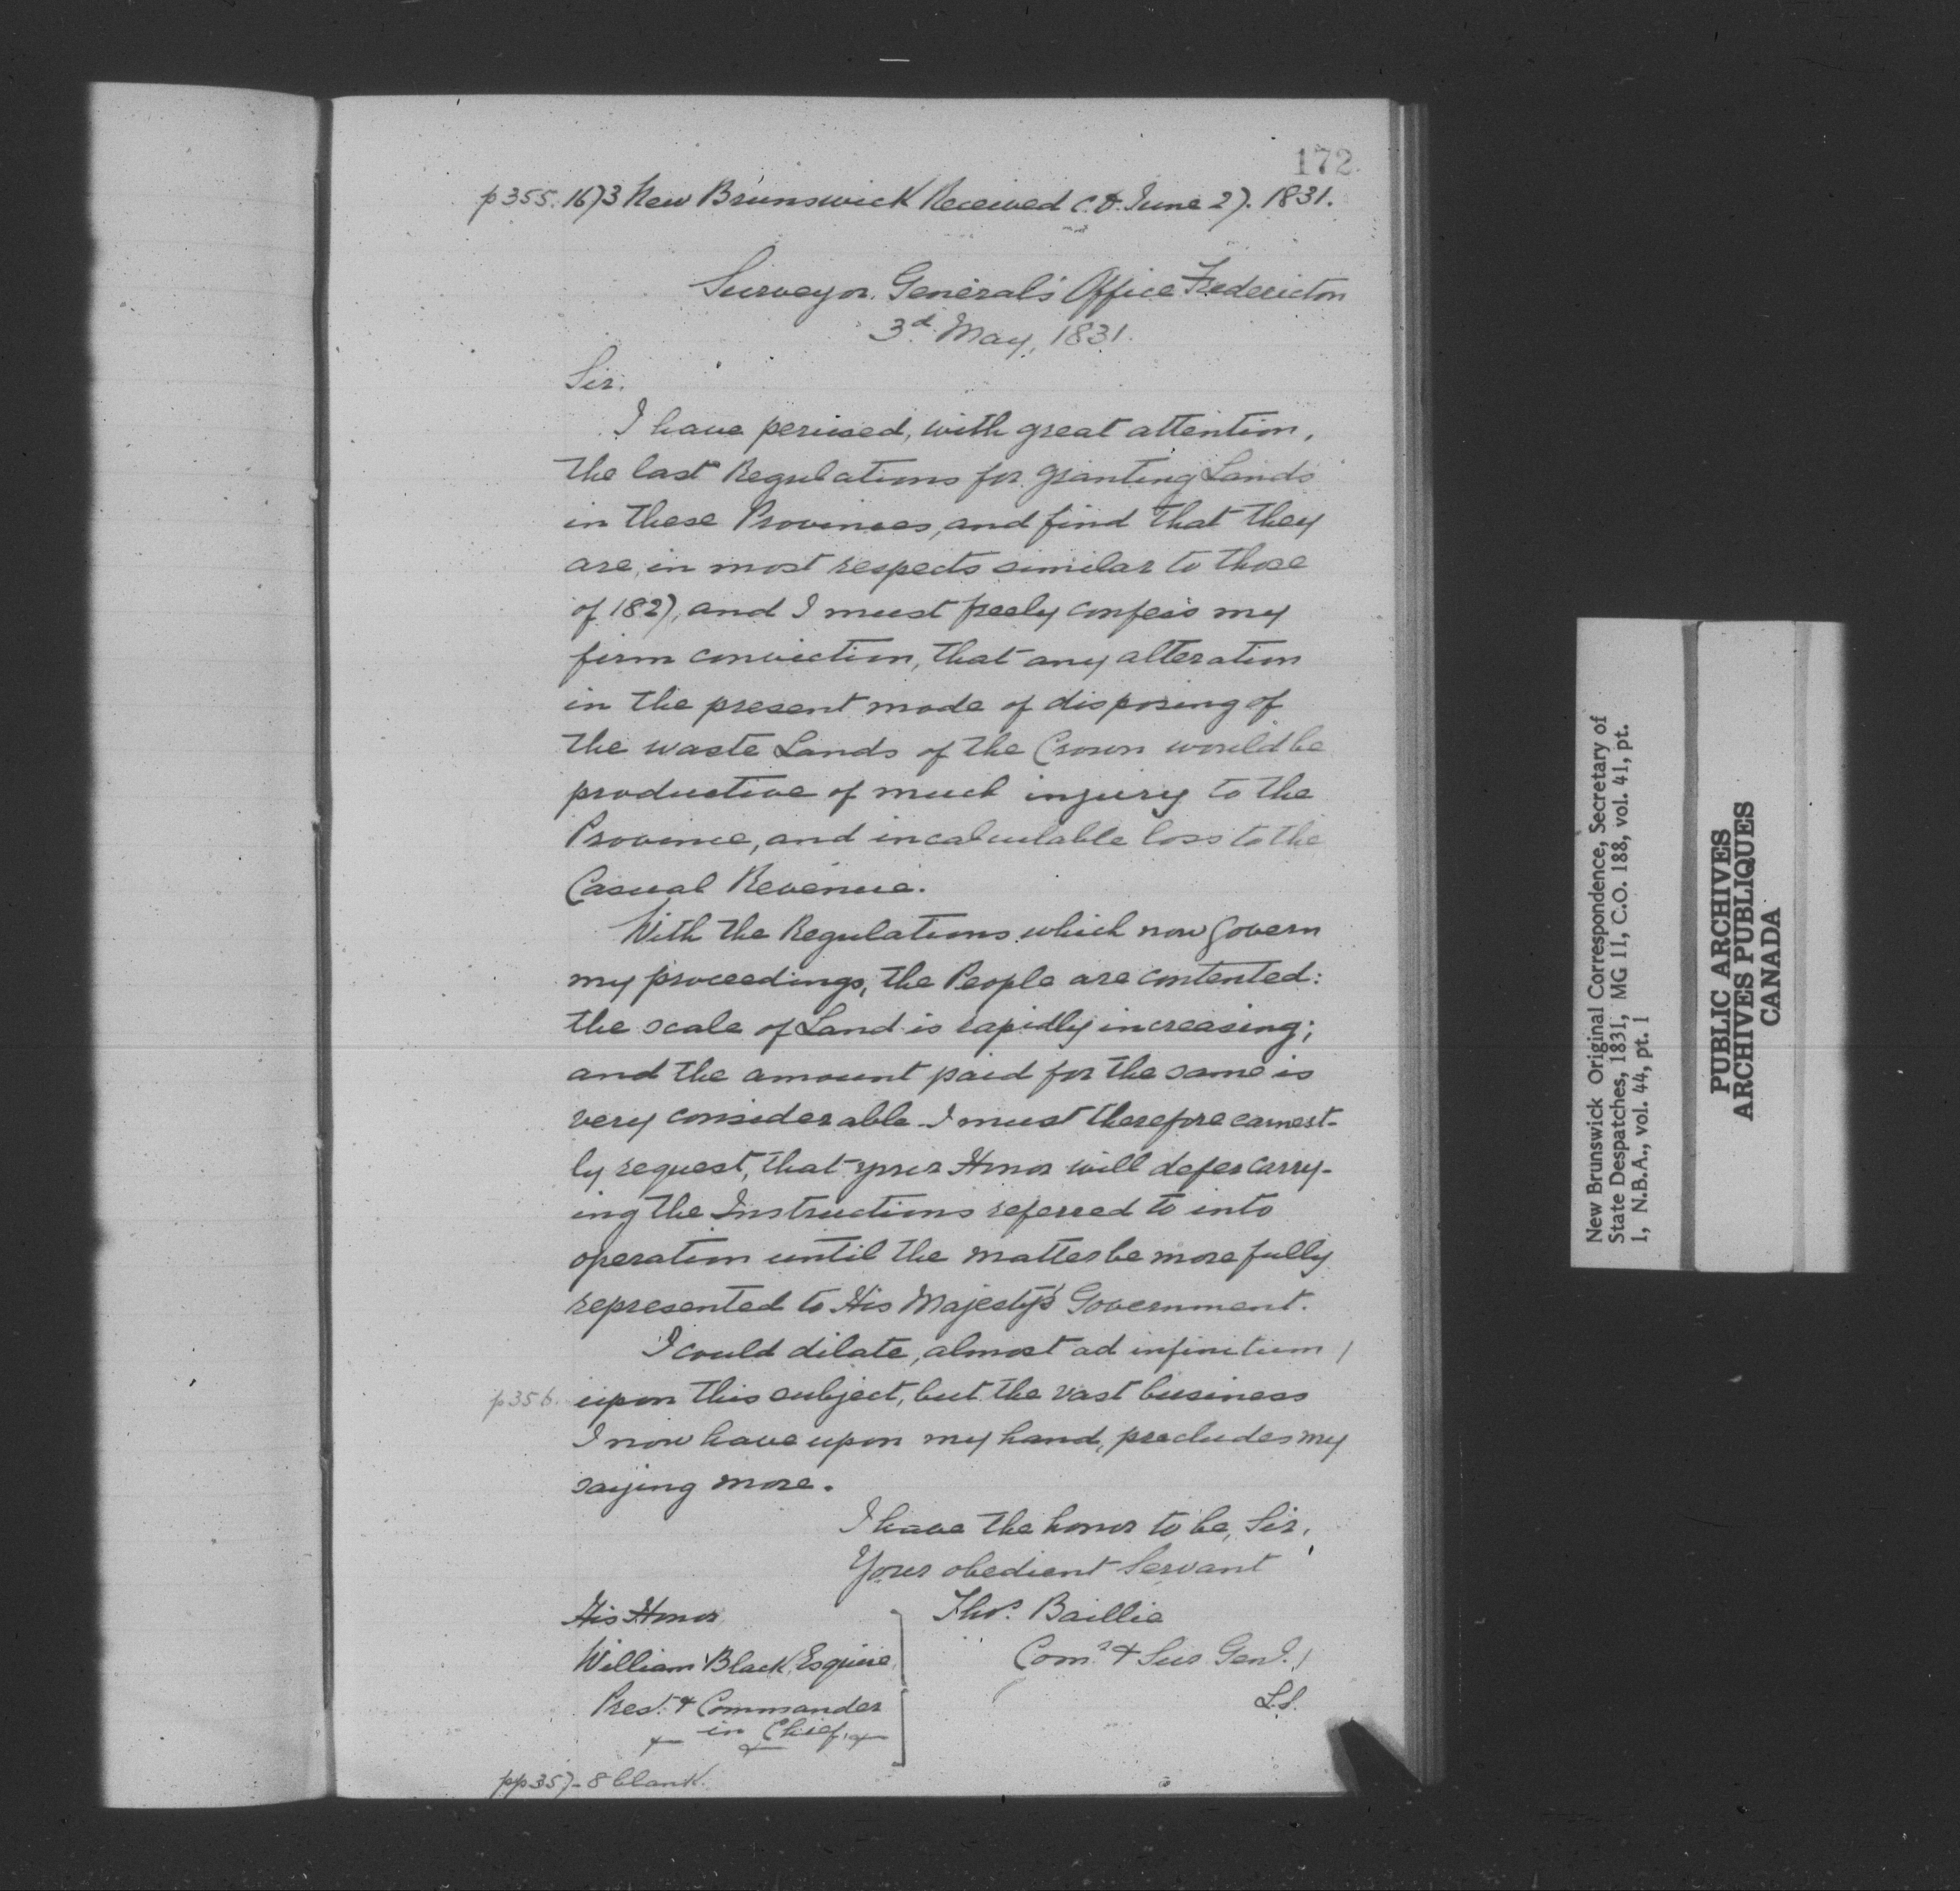 172.
p355. 1673 New Brunswick Received C.D. June 27. 1831.
Surveyor General's Office Fredericton
3d May, 1831.
Sir.
I have perused, with great attention,
the last Regulations for granting Lands
in these Provinces, and find that they
are, in most respects similar to those
of 1827, and I must freely confess my
firm conviction, that any alteration
in the present mode of disposing of
the waste Lands of the Crown would be
productive of much injury to the
Province, and incalculable loss to the
Casual Revenue.
With the Regulations which now govern
my proceedings, the People are contented:
the scale of Land is rapidly increasing;
and the amount paid for the same is
very considerable I must therefore earnest-
ly request, that your Honor will defer carry-
ing the Instructions referred to into
operation until the matter be more fully
represented to His Majesty's Government.
I could dilate, almost ad infinitum /
p356. upon this subject, but the vast business
I now have upon my hand, precludes my
saying more.
I have the honor to be, Sir,
Your obedient Servant
His Honor
William Black, Esquire
Prest. & Commander
in Chief.
Thos. Baillie
Comr. & Sur. Genl. /
L.S.
pp357-8 blank.
New Brunswick Original Correspondence, Secretary of
State Despatches, 1831, MG 11, C.O. 188, vol. 41, pt.
1, N.B.A., vol. 44, pt. 1
PUBLIC ARCHIVES
ARCHIVES PUBLIQUES
CANADA